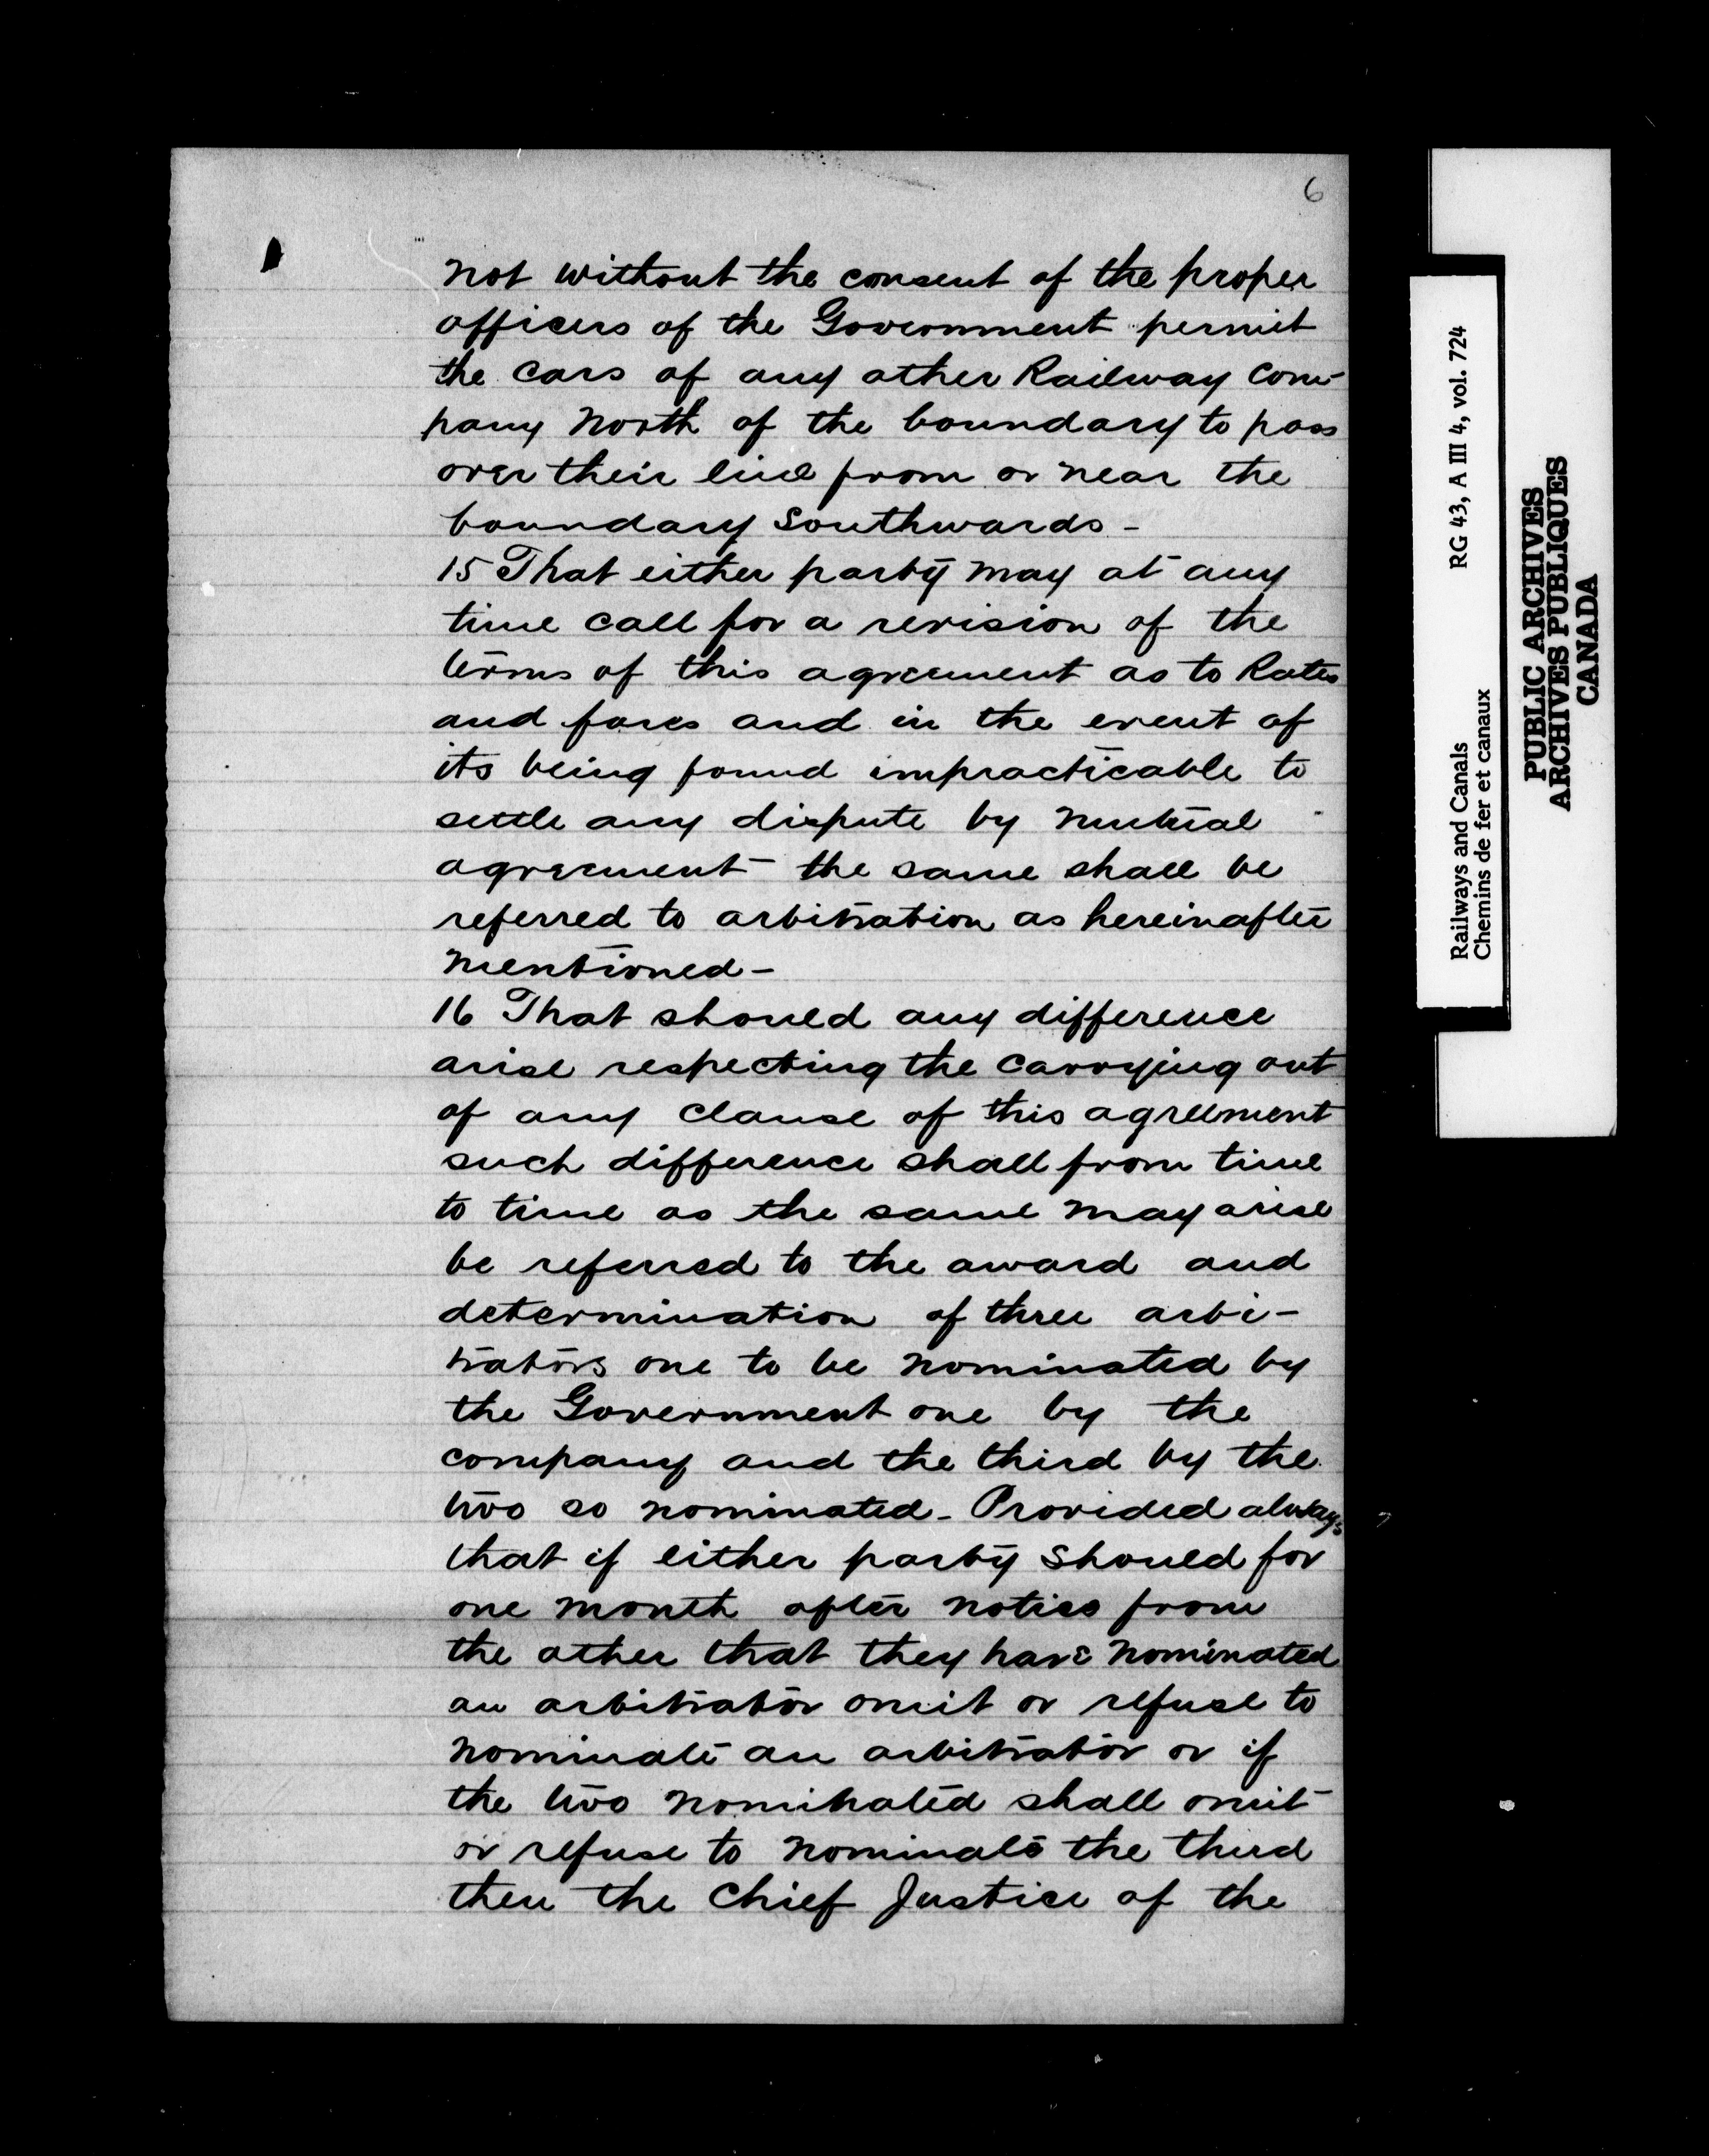 6
not without the consent of the proper
officers of the Government permit
the cars of any other Railway Com-
pany North of the boundary to pass
over their line from or near the
boundary Southwards -
15 That either party may at any
time call for a revision of the
terms of this agreement as to Rates
and fares and in the event of
its being found impracticable to
settle any dispute by mutual
agreement the same shall be
referred to arbitration as hereinafter
mentioned -
16 That should any difference
arise respecting the carrying out
of any clause of this agreement
such difference shall from time
to time as the same may arise
be referred to the award and
determination of three arbi-
trators one to be nominated by
the Government one by the
company and the third by the
two so nominated - Provided always
that if either party should for
one month after notice from
the other that they have nominated
an arbitrator omit or refuse to
nominate an arbitrator or if
the two nominated shall omit
or refuse to nominate the third
then the Chief Justice of the
Railways and Canals RG 43, A III 4, vol. 724
Chemins de fer et canaux
PUBLIC ARCHIVES
ARCHIVES PUBLIQUES
CANADA